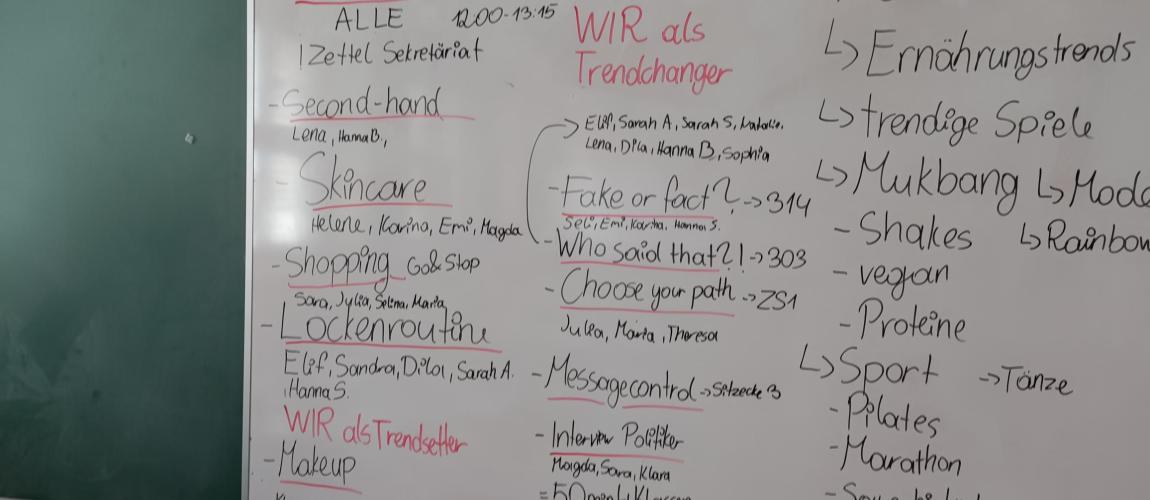 ALLE 1200-13:15
1 Zettel Sekretäriat
- Second-hand
Lena, Hanna B.,
- Skincare
Helene, Karina, Emi, Magda
- Shopping Go&Stop
Sara, Julia, Selina, Maria
- Lockenroutine
Elif, Sandra, Dila, Sarah A.
Hanna S.
WIR als Trendsetter
- Makeup
WIR als
Trendchanger
Elif, Sarah A, Sarah S,
Lena, Dila, Hanna B, Sophia
- Fake or fact? -> 314
Seli, Emi, Karina, Hanna S.
- Who said that?! -> 303
- Choose your path -> ZS1
Julia, Maria, Theresa
- Messagecontrol -> Sitzecke 3
- Interview Politiker
Magda, Sara, Klara
↳ Ernährungstrends
↳ trendige Spiele
↳ Mukbang ↳ Mode
- Shakes ↳ Rainbow
- vegan
- Proteine
↳ Sport -> Tänze
- Pilates
- Marathon